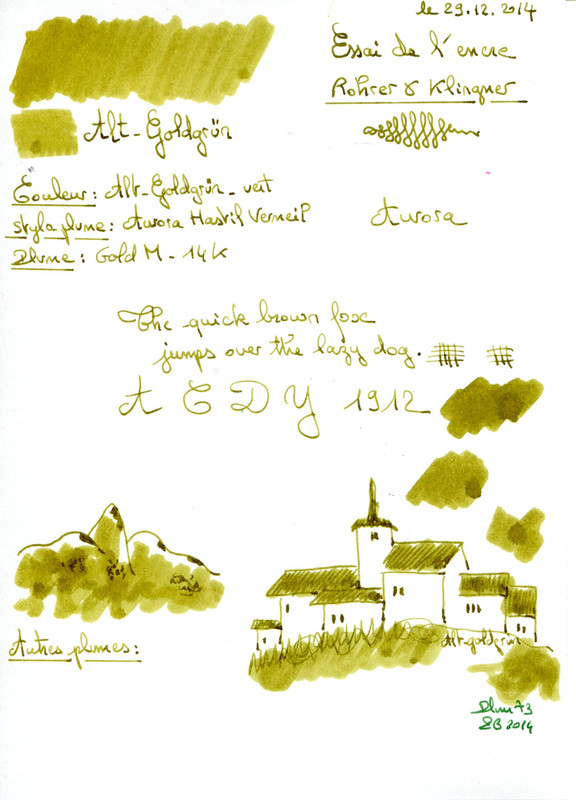 le 29.12.2014
Essai de l'encre
Rohrer & Klingner
Alt-Goldgrün
Couleur : Alt-Goldgrün - vert
stylo plume : Aurora Hastil Vermeil
Aurora
Plume : Gold M - 14K
The quick brown fox
jumps over the lazy dog.
A E D Y 1912
Alt-goldgrün
Autres plumes :
Plum73
EB 2014